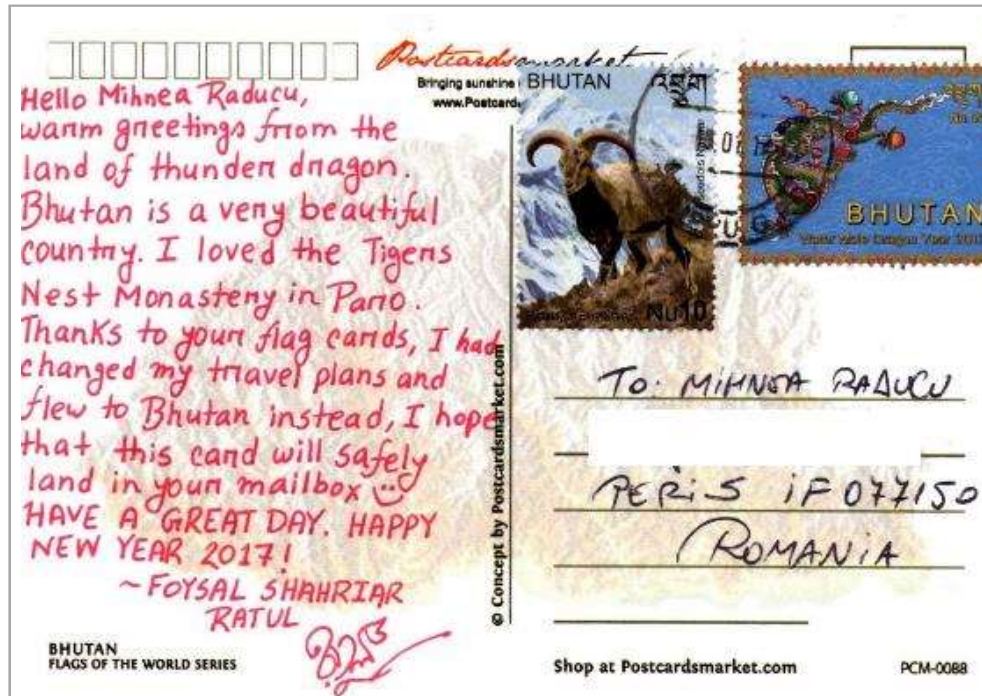 Postcardsmarket
Bringing sunshine
www.Postcard
Hello Mihnea Raducu,
warm greetings from the
land of thunder dragon.
Bhutan is a very beautiful
country. I loved the Tigers
Nest Monastery in Paro.
Thanks to your flag cards, I had
changed my travel plans and
flew to Bhutan instead, I hope
that this card will safely
land in your mailbox
HAVE A GREAT DAY. HAPPY
NEW YEAR 2017!
~FOYSAL SHAHRIAR
RATUL
BHUTAN
FLAGS OF THE WORLD SERIES
© Concept by Postcardsmarket.com
BHUTAN
Nu10
BHUTAN
Water Male Dragon Year
TO: MIHNEA RADUCU
PERIS IF 077150
ROMANIA
Shop at Postcardsmarket.com
PCM-0088